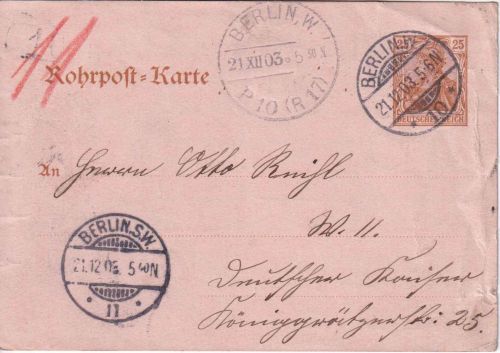 11
BERLIN, W.
21 XII 03. 5 50 N
P 10 (R 17)
BERLIN.S.W.
21.12.03. 5-6N
* 10 *
25
DEUTSCHES REICH
Rohrpost-Karte
An Herrn Otto Ruihl
W. 11.
Deutscher Kaiser
Königgrätzerstr: 25.
BERLIN.S.W.
21.12.03. 5 40 N
* 11 *